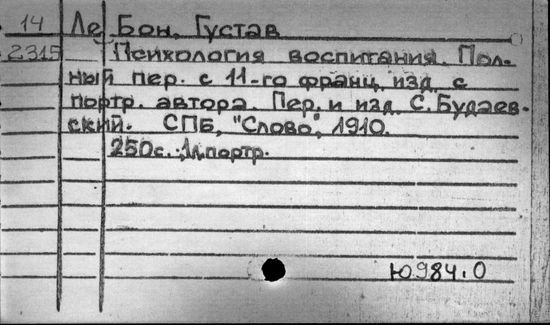 14 Ле Бон, Густав
2315 Психология воспитания. Пол-
ный пер. с 11-го франц. изд. с
портр. автора. Пер. и изд. С. Будаев-
ский. СПБ, "Слово", 1910.
250с.; 1л.портр.
Ю984.0